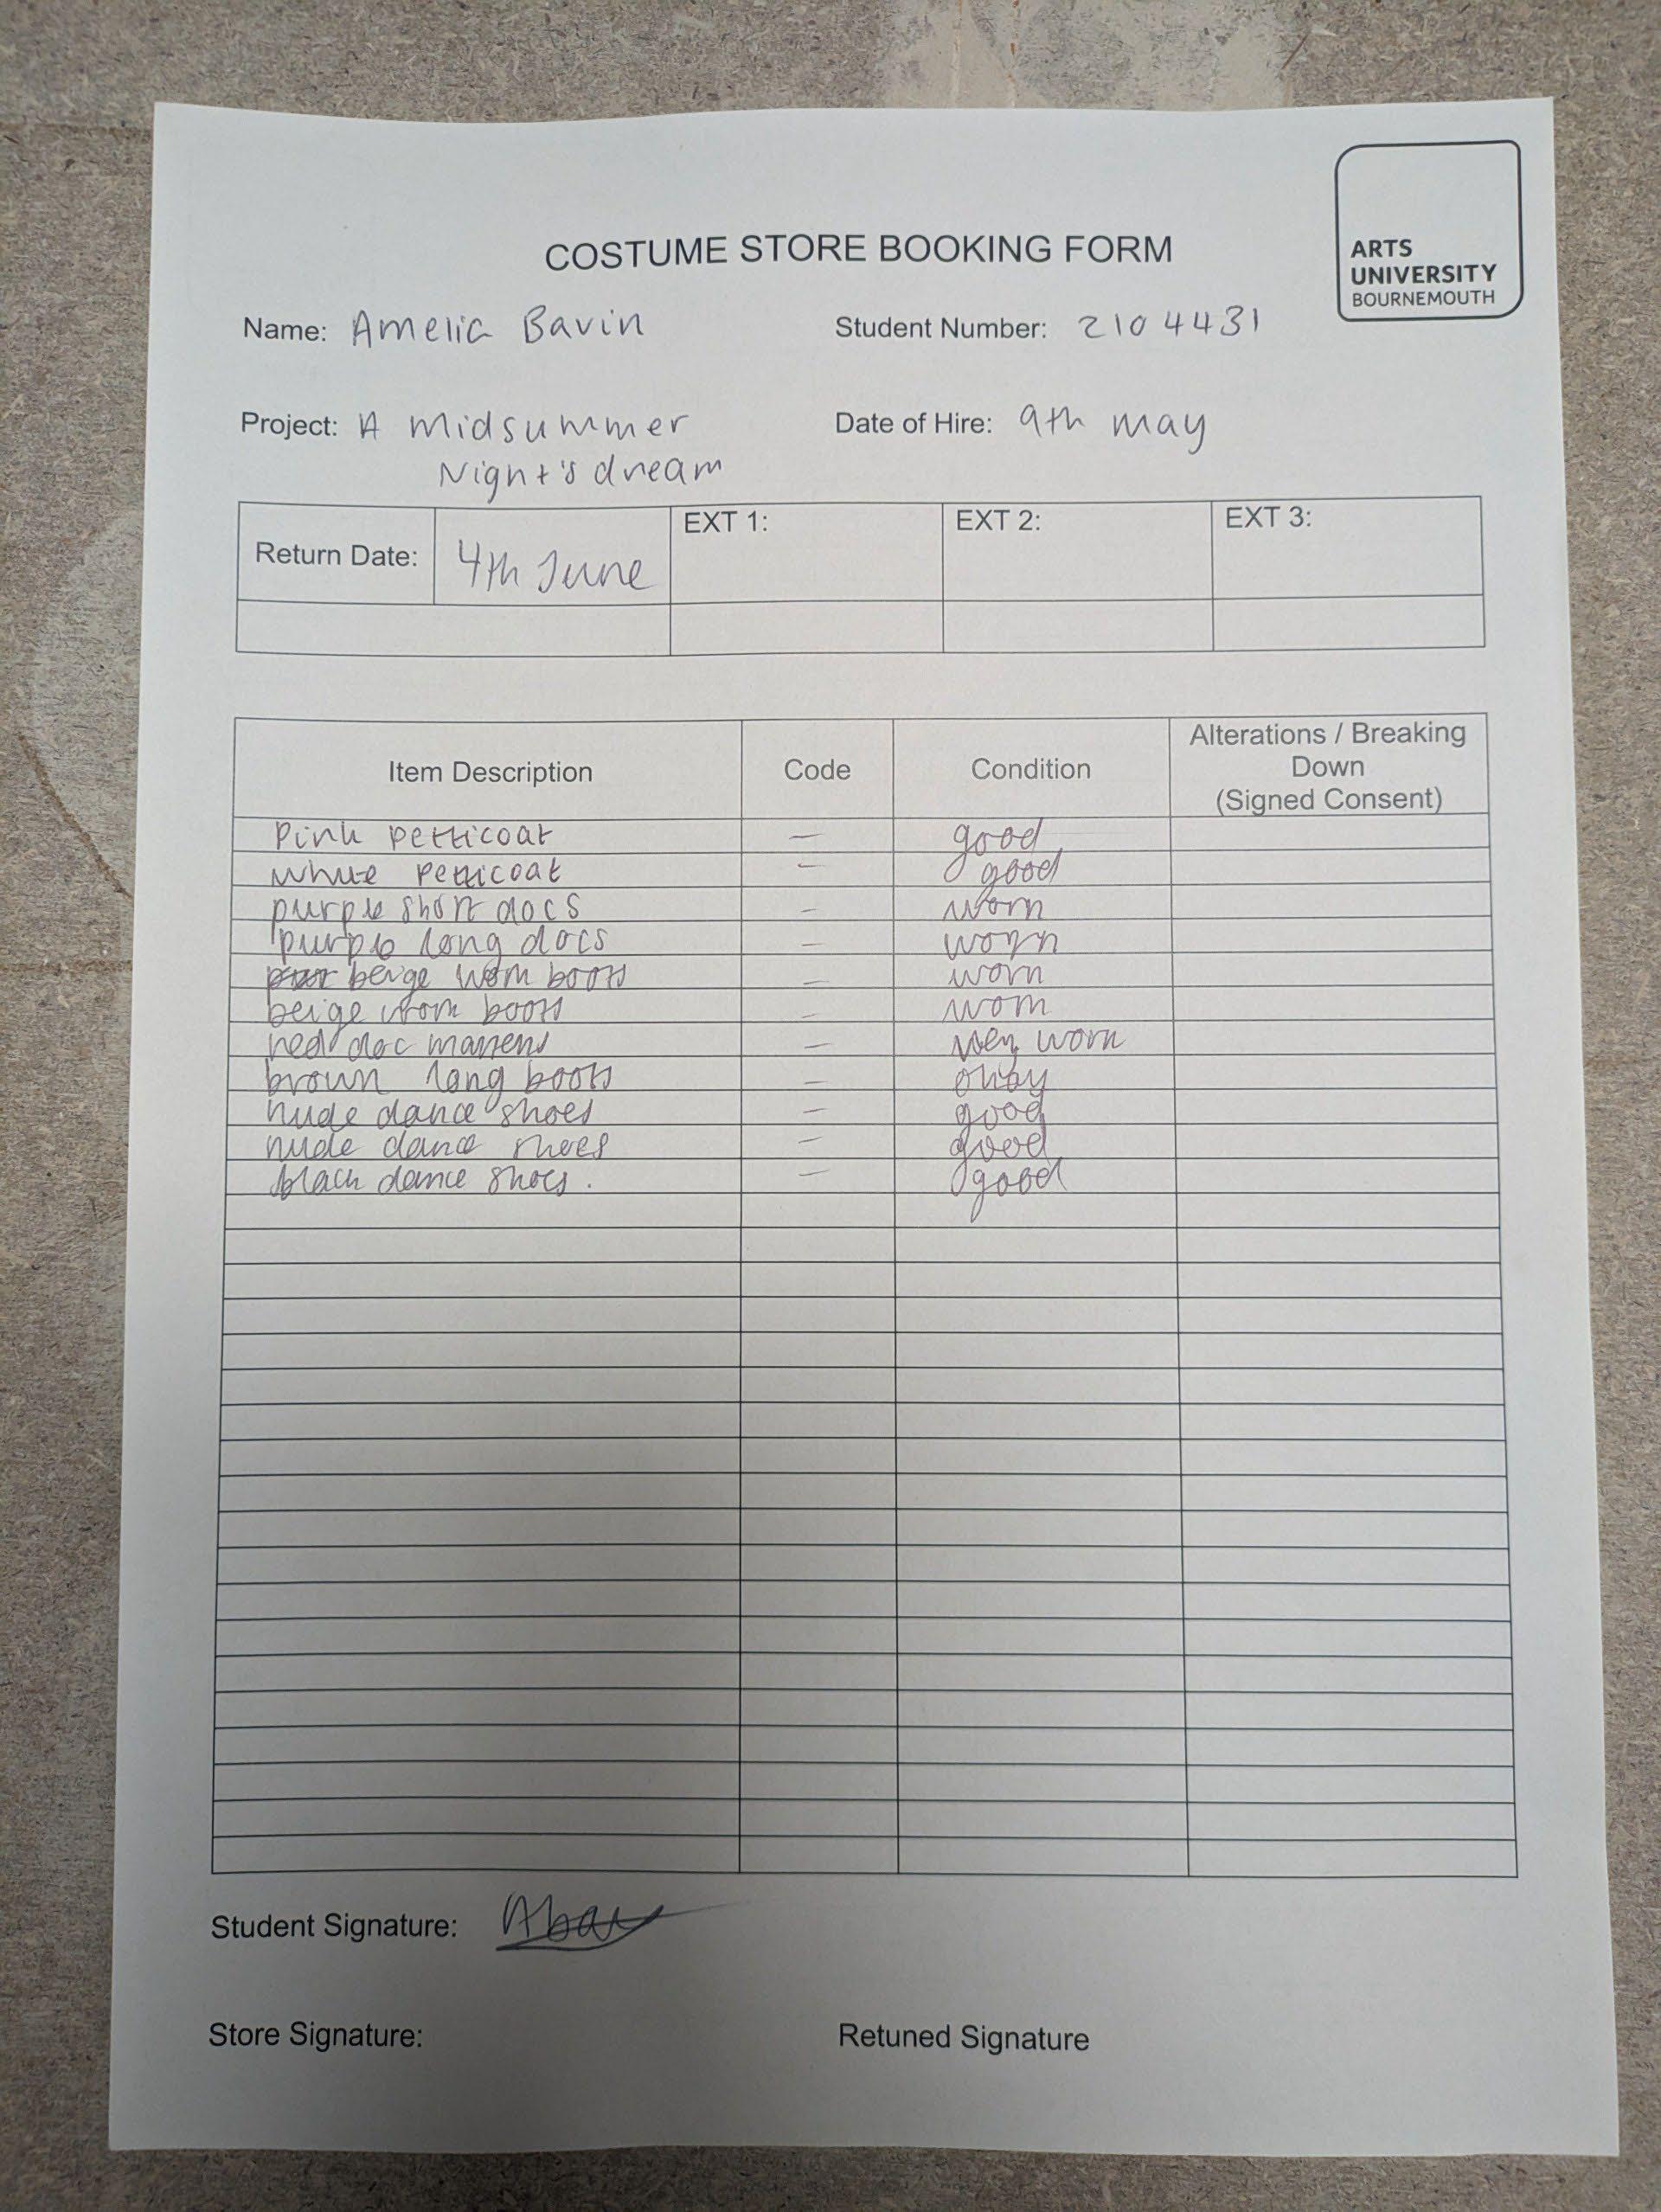 ARTS
UNIVERSITY
BOURNEMOUTH
COSTUME STORE BOOKING FORM
Name: Amelia Bavin Student Number: 2104431
Project: A Midsummer Date of Hire: 9th may
Night's dream
Return Date: 4th June EXT 1: EXT 2: EXT 3:
Item Description Code Condition Alterations / Breaking Down (Signed Consent)
Pink petticoat — good
white petticoat — good
purple short docs — worn
purple long docs — worn
beige worn boots — worn
beige worn boots — worn
red doc martens — very worn
brown long boots — okay
nude dance shoes — good
nude dance shoes — good
black dance shoes. — good
Student Signature: Abav
Store Signature: Retuned Signature